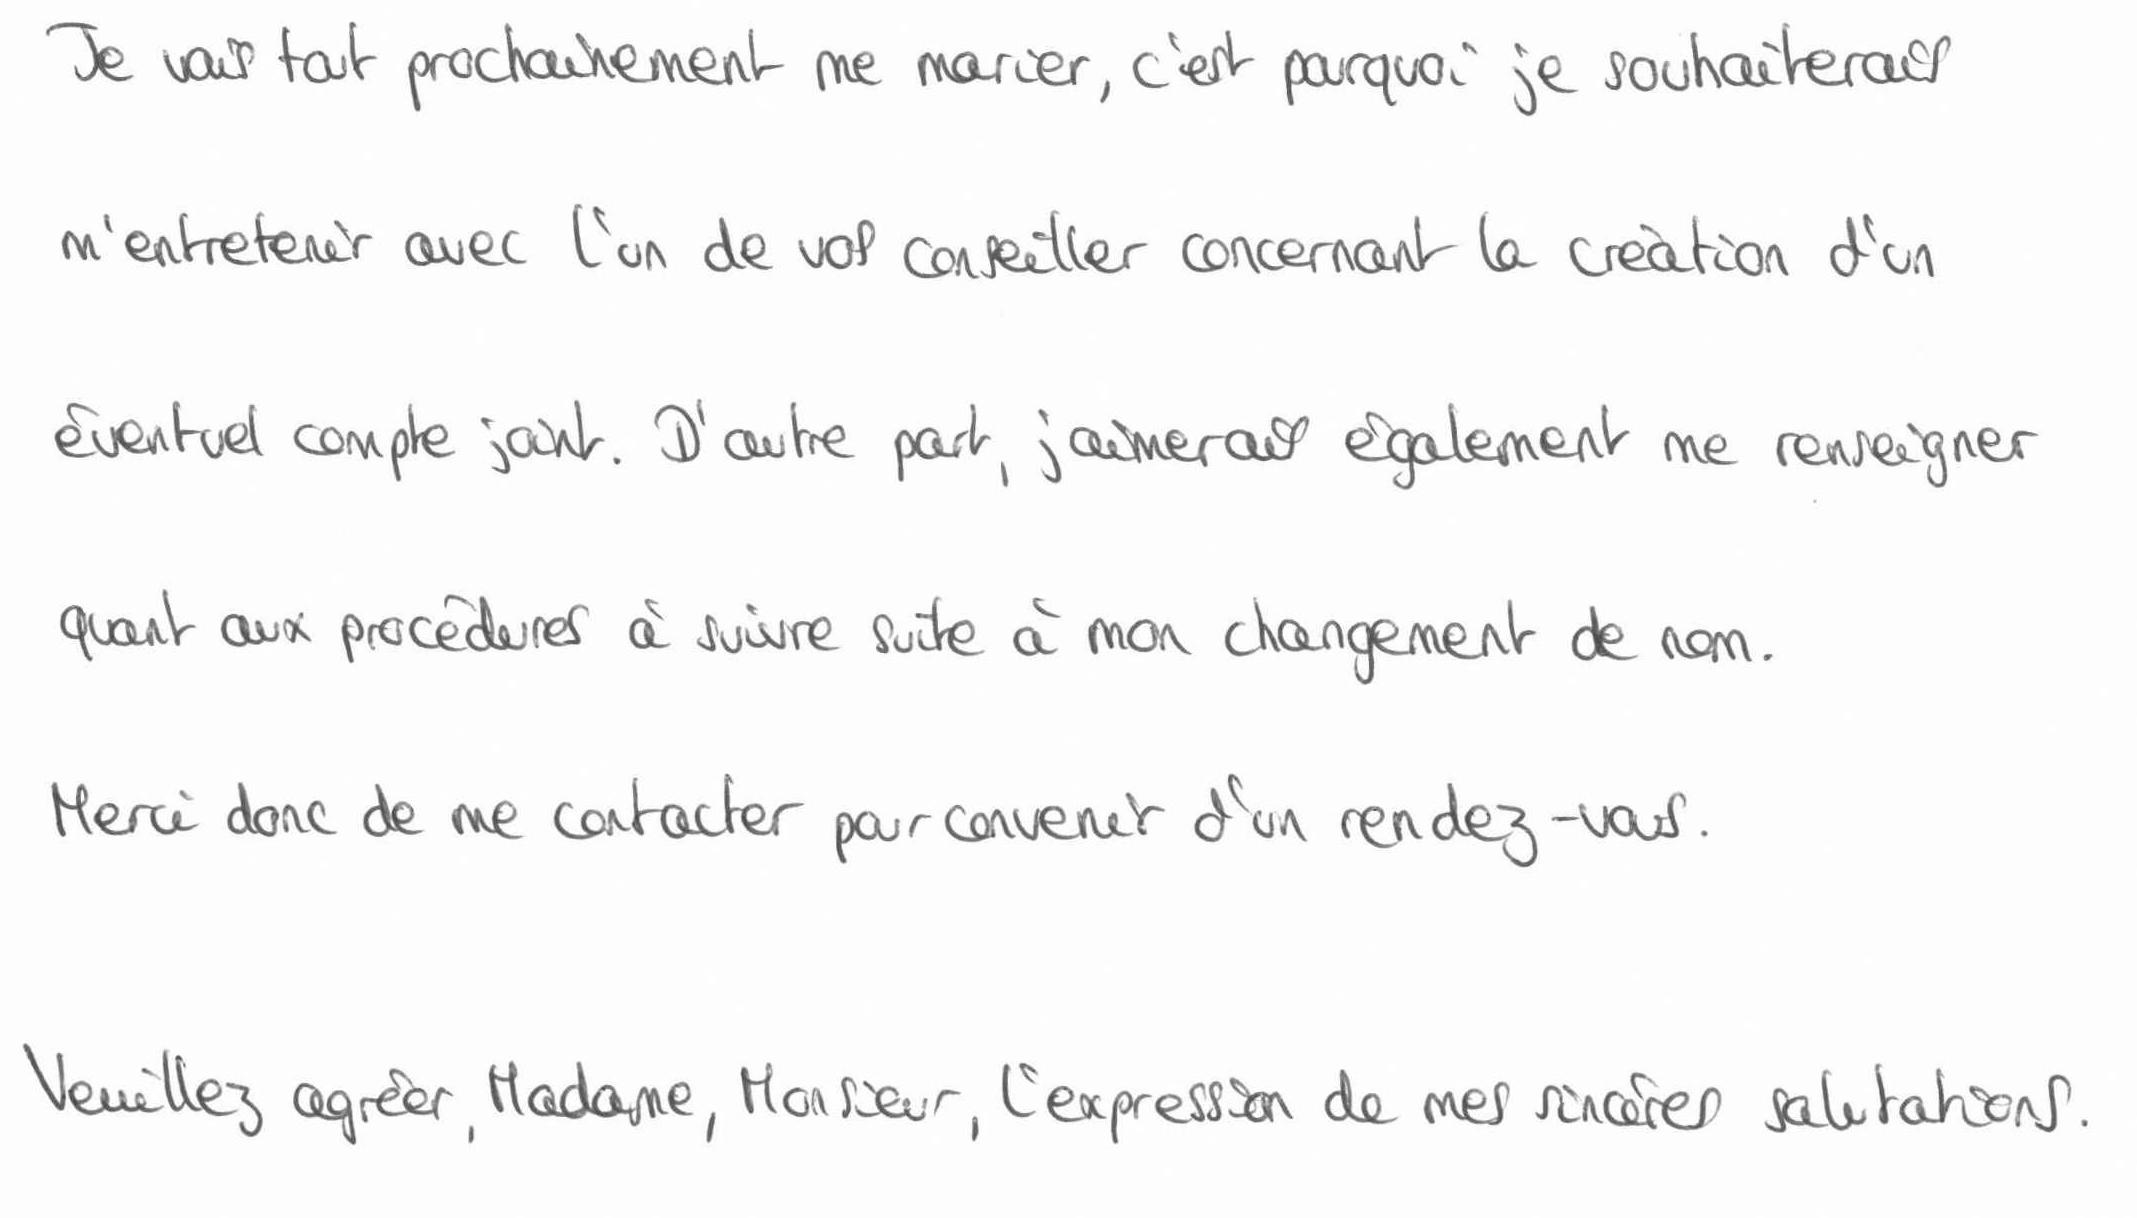 Je vais tout prochainement me marier, c'est pourquoi je souhaiterais
m'entretenir avec l'un de vos conseiller concernant la création d'un
éventuel compte joint. D'autre part, j'aimerais également me renseigner
quant aux procédures à suivre suite à mon changement de nom.
Merci donc de me contacter pour convenir d'un rendez-vous.
Veuillez agréer, Madame, Monsieur, l'expression de mes sincères salutations.